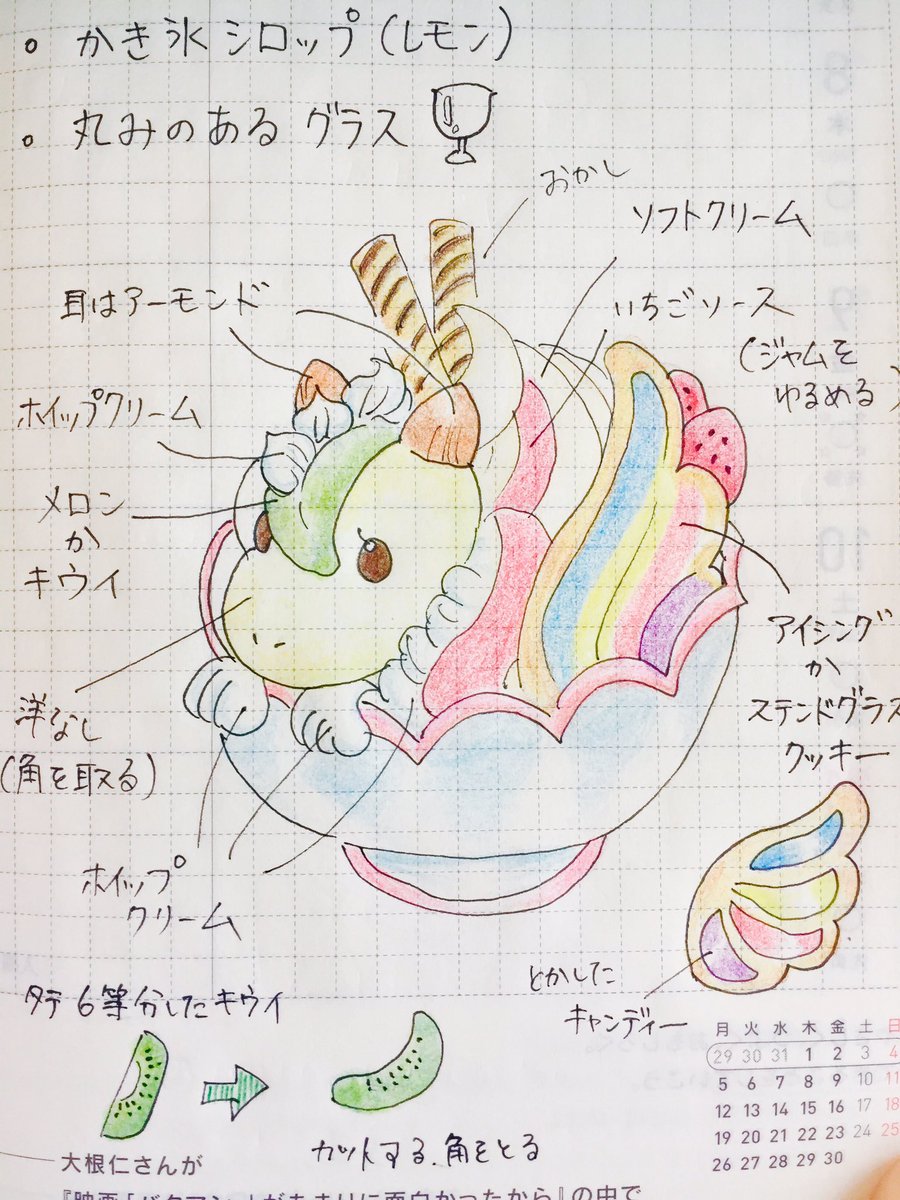 。かき氷シロップ(レモン)
。丸みのある グラス
おかし
ソフトクリーム
耳はアーモンド
いちごソース
(ジャムを
ゆるめる)
ホイップクリーム
メロン
か
キウイ
アイシング
か
ステンドグラス
クッキー
洋なし
(角を取る)
ホイップ
クリーム
とかした
キャンディー
タテ6等分したキウイ
カットする、角をとる
月 火 水 木 金 土 日
29 30 31 1 2 3 4
5 6 7 8 9 10 11
12 13 14 15 16 17 18
19 20 21 22 23 24 25
26 27 28 29 30
大根仁さんが
『映画「バクマン。」があまりに面白かったから』の中で